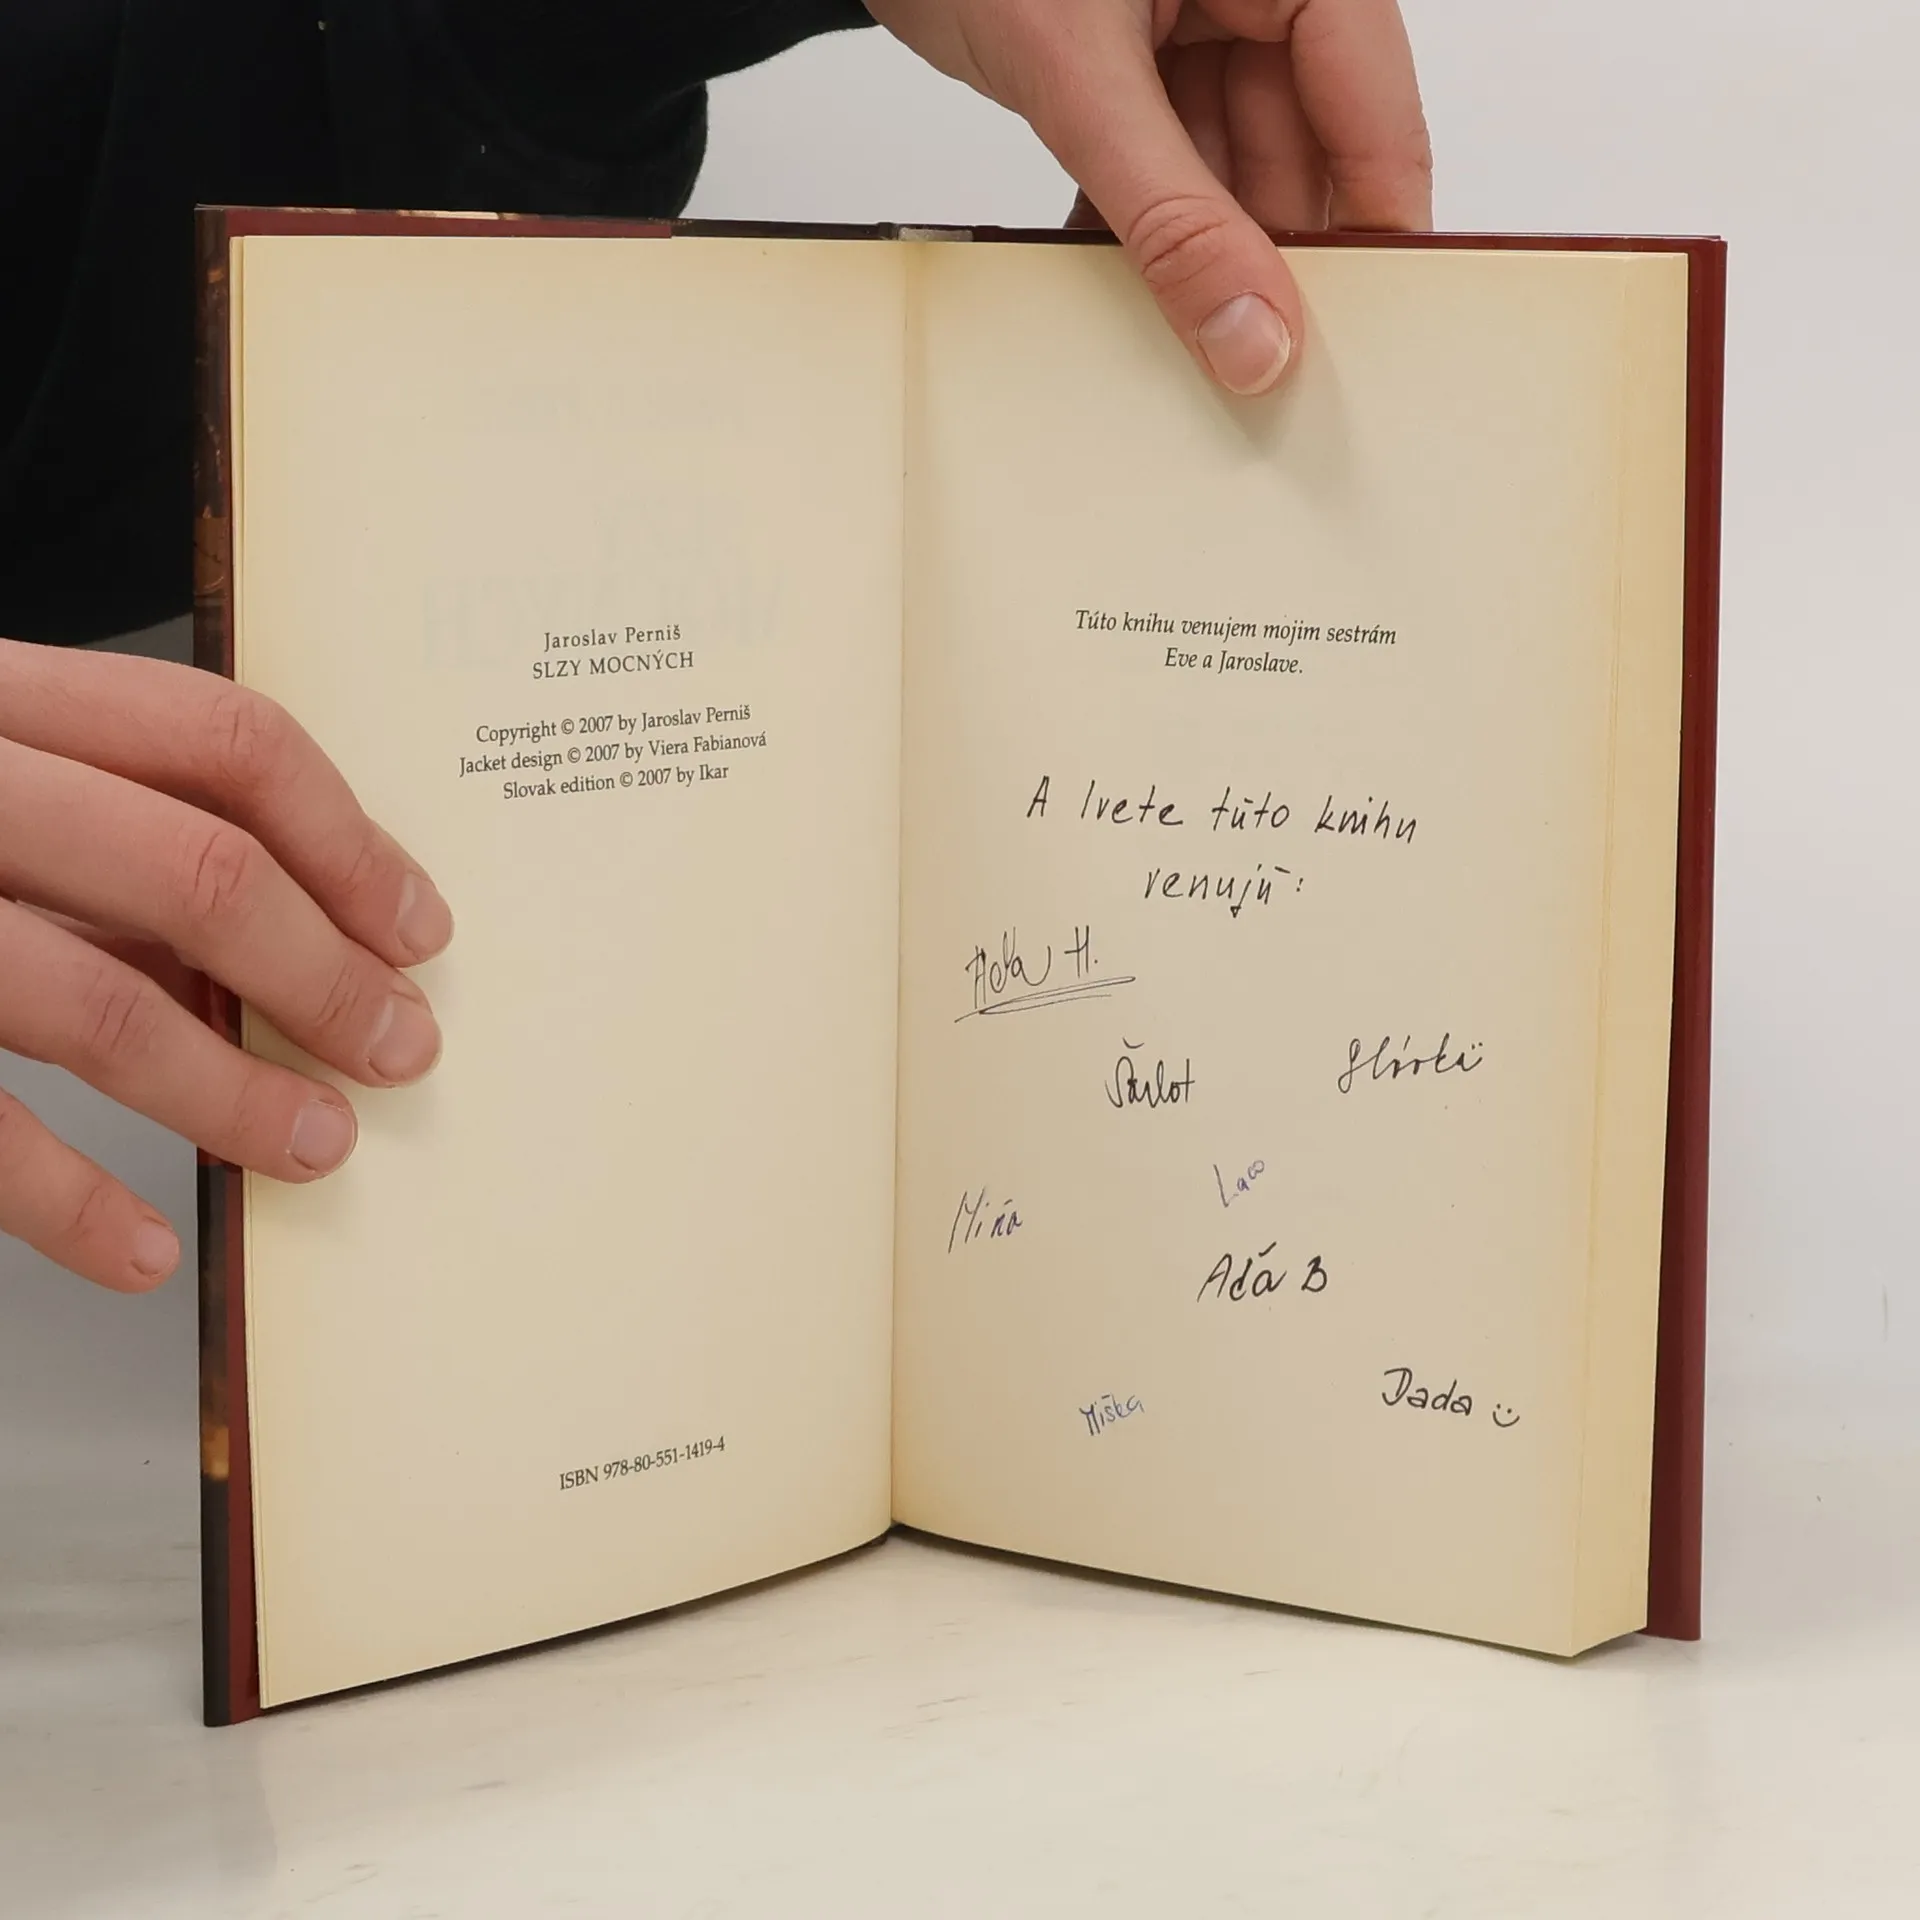 Jaroslav Perniš
SLZY MOCNÝCH
Copyright © 2007 by Jaroslav Perniš
Jacket design © 2007 by Viera Fabianová
Slovak edition © 2007 by Ikar
ISBN 978-80-551-1419-4
Túto knihu venujem mojim sestrám
Eve a Jaroslave.
A Ivete túto knihu
venujú:
H.
Šarlot
Laco
Miňa
Aďa B
Miška
Dada